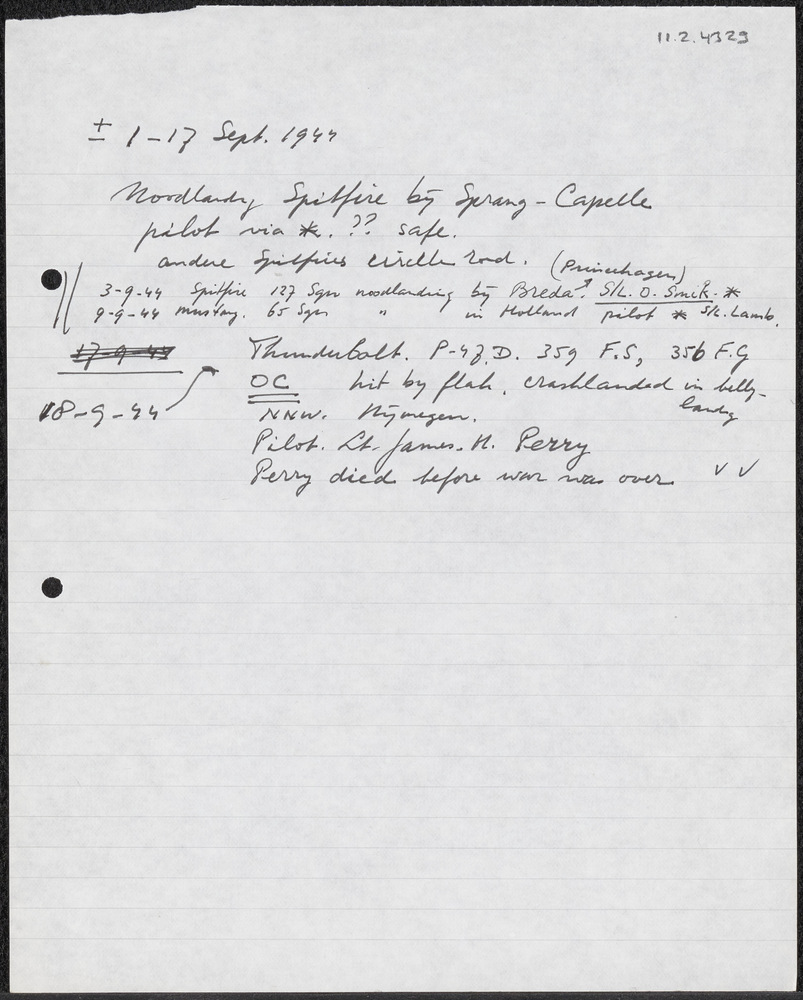 11.2.4329
± 1-17 Sept. 1944
Noodlandg Spitfire bij Sprang-Capelle
pilot via *. ?? safe.
andere Spitfires circelle rond.
(Princehagen)
3-9-44 Spitfire 127 Sqn noodlanding bij Breda. S/L. O. Smik. *
9-9-44 mustang. 65 Sqn " in Holland pilot * S/L. Lamb.
17-9-44 Thunderbolt. P-47.D. 359 F.S, 356 F.G
OC hit by flak, crashlanded in belly-
landg
18-9-44 NNW. Nijmegen.
Pilot. Lt. James. H. Perry
Perry died before war was over. v v